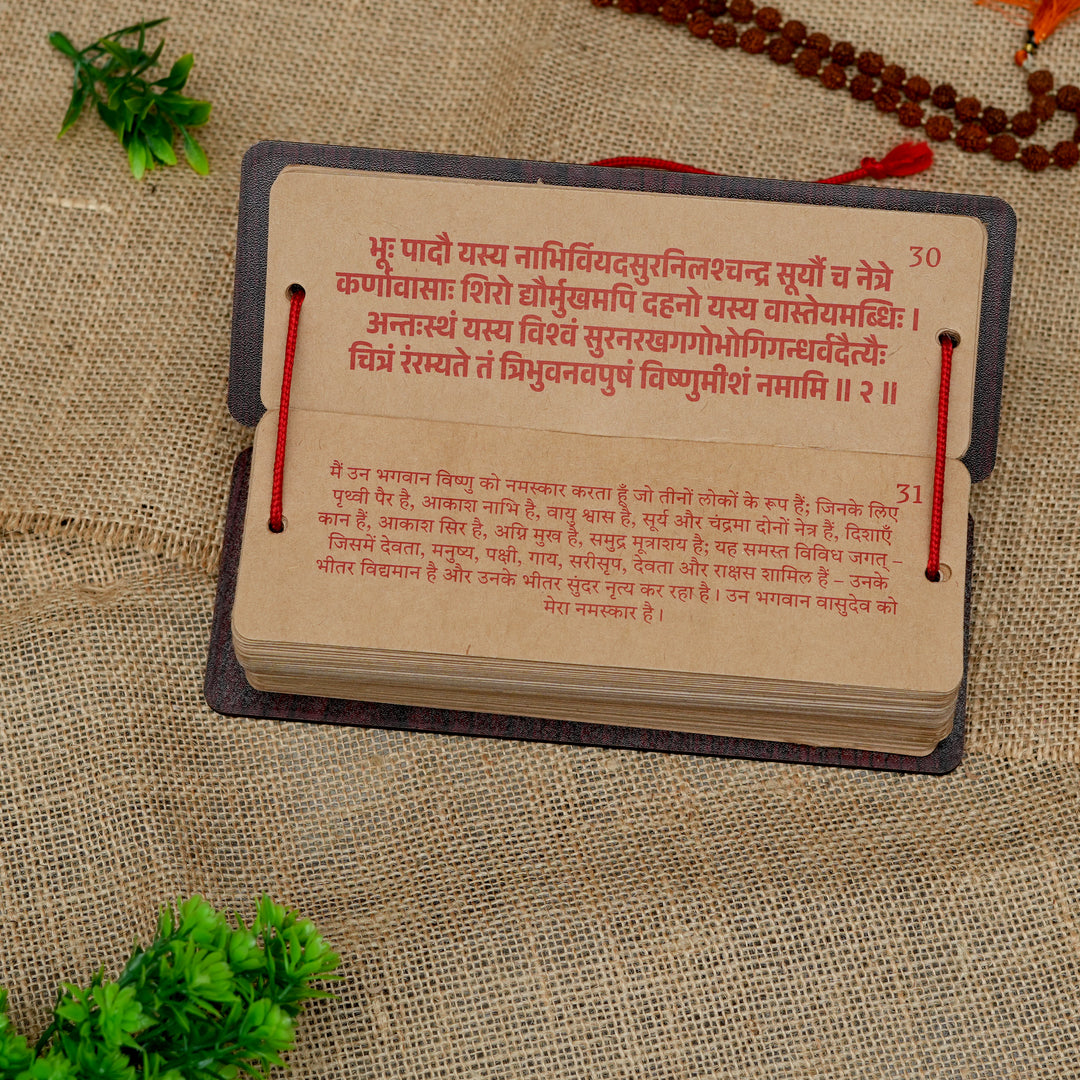 30
भूः पादौ यस्य नाभिर्वियदसुरनिलश्चन्द्र सूर्यौं च नेत्रे
कर्णावासाः शिरो द्यौर्मुखमपि दहनो यस्य वास्तेयमब्धिः ।
अन्तःस्थं यस्य विश्वं सुरनरखगगोभोगिगन्धर्वदैत्यैः
चित्रं रंरम्यते तं त्रिभुवनवपुषं विष्णुमीशं नमामि ॥ २ ॥
31
मैं उन भगवान विष्णु को नमस्कार करता हूँ जो तीनों लोकों के रूप हैं; जिनके लिए
पृथ्वी पैर है, आकाश नाभि है, वायु श्वास है, सूर्य और चंद्रमा दोनों नेत्र हैं, दिशाएँ
कान हैं, आकाश सिर है, अग्नि मुख है, समुद्र मूत्राशय है; यह समस्त विविध जगत् –
जिसमें देवता, मनुष्य, पक्षी, गाय, सरीसृप, देवता और राक्षस शामिल हैं – उनके
भीतर विद्यमान है और उनके भीतर सुंदर नृत्य कर रहा है। उन भगवान वासुदेव को
मेरा नमस्कार है।